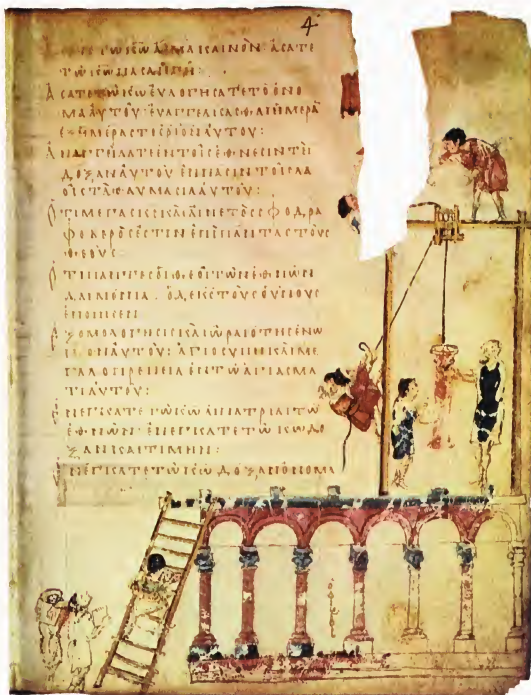 4
ΤΩ ΚΩ ΑΣΜΑ ΚΑΙΝΟΝ· ΑСΑΤΕ
ΤΩ ΚΩ ΠΑСΑ Η ΓΗ:
ΑСΑΤΕ ΤΩ ΚΩ ΕΥΛΟΓΗСΑΤΕ ΤΟ ΟΝΟ
ΜΑ ΑΥΤΟΥ· ΕΥΑΓΓΕΛΙСΑСΘΑΙ ΗΜΕΡΑ
ΕΞ ΗΜΕΡΑС ΤΟ СΡΙΟΝ ΑΥΤΟΥ:
ΑΝΑΓΓΕΙΛΑΤΕ ΕΝ ΤΟΙС ΕΘΝΕСΙΝ ΤΗ
ΔΟΞΑΝ ΑΥΤΟΥ ΕΝ ΠΑСΙΝ ΤΟΙС ΛΑ
ΟΙС ΤΑ ΘΑΥΜΑСΙΑ ΑΥΤΟΥ:
ΟΤΙ ΜΕΓΑС ΚС Κ ΑΙΝΕΤΟС СΦΟΔΡΑ
ΦΟΒΕΡΟС ΕСΤΙΝ ΕΠΙ ΠΑΝΤΑС ΤΟΥС
ΘΕΟΥС
ΟΤΙ ΠΑΝΤΕС ΟΙ ΘΕΟΙ ΤΩΝ ΕΘΝΩΝ
ΔΑΙΜΟΝΙΑ. Ο ΔΕ ΚС ΤΟΥС ΟΥΝΟΥС
ΕΠΟΙΗСΕΝ
ΕΞΟΜΟΛΟΓΗСΙС Κ ΩΡΑΙΟΤΗС ΕΝΩ
ΠΙΟΝ ΑΥΤΟΥ: ΑΓΙΟСΥΝΗ Κ ΜΕ
ΓΑΛΟΠΡΕΠΕΙΑ ΕΝ ΤΩ ΑΓΙΑСΜΑ
ΤΙ ΑΥΤΟΥ:
ΕΝΕΓΚΑΤΕ ΤΩ ΚΩ ΑΙ ΠΑΤΡΙΑΙ ΤΩ
ΕΘΝΩΝ· ΕΝΕΓΚΑΤΕ ΤΩ ΚΩ ΔΟ
ΞΑΝ ΚΑΙ ΤΙΜΗΝ:
ΕΝΕΓΚΑΤΕ ΤΩ ΚΩ ΔΟΞΑΝ ΟΝΟΜΑ